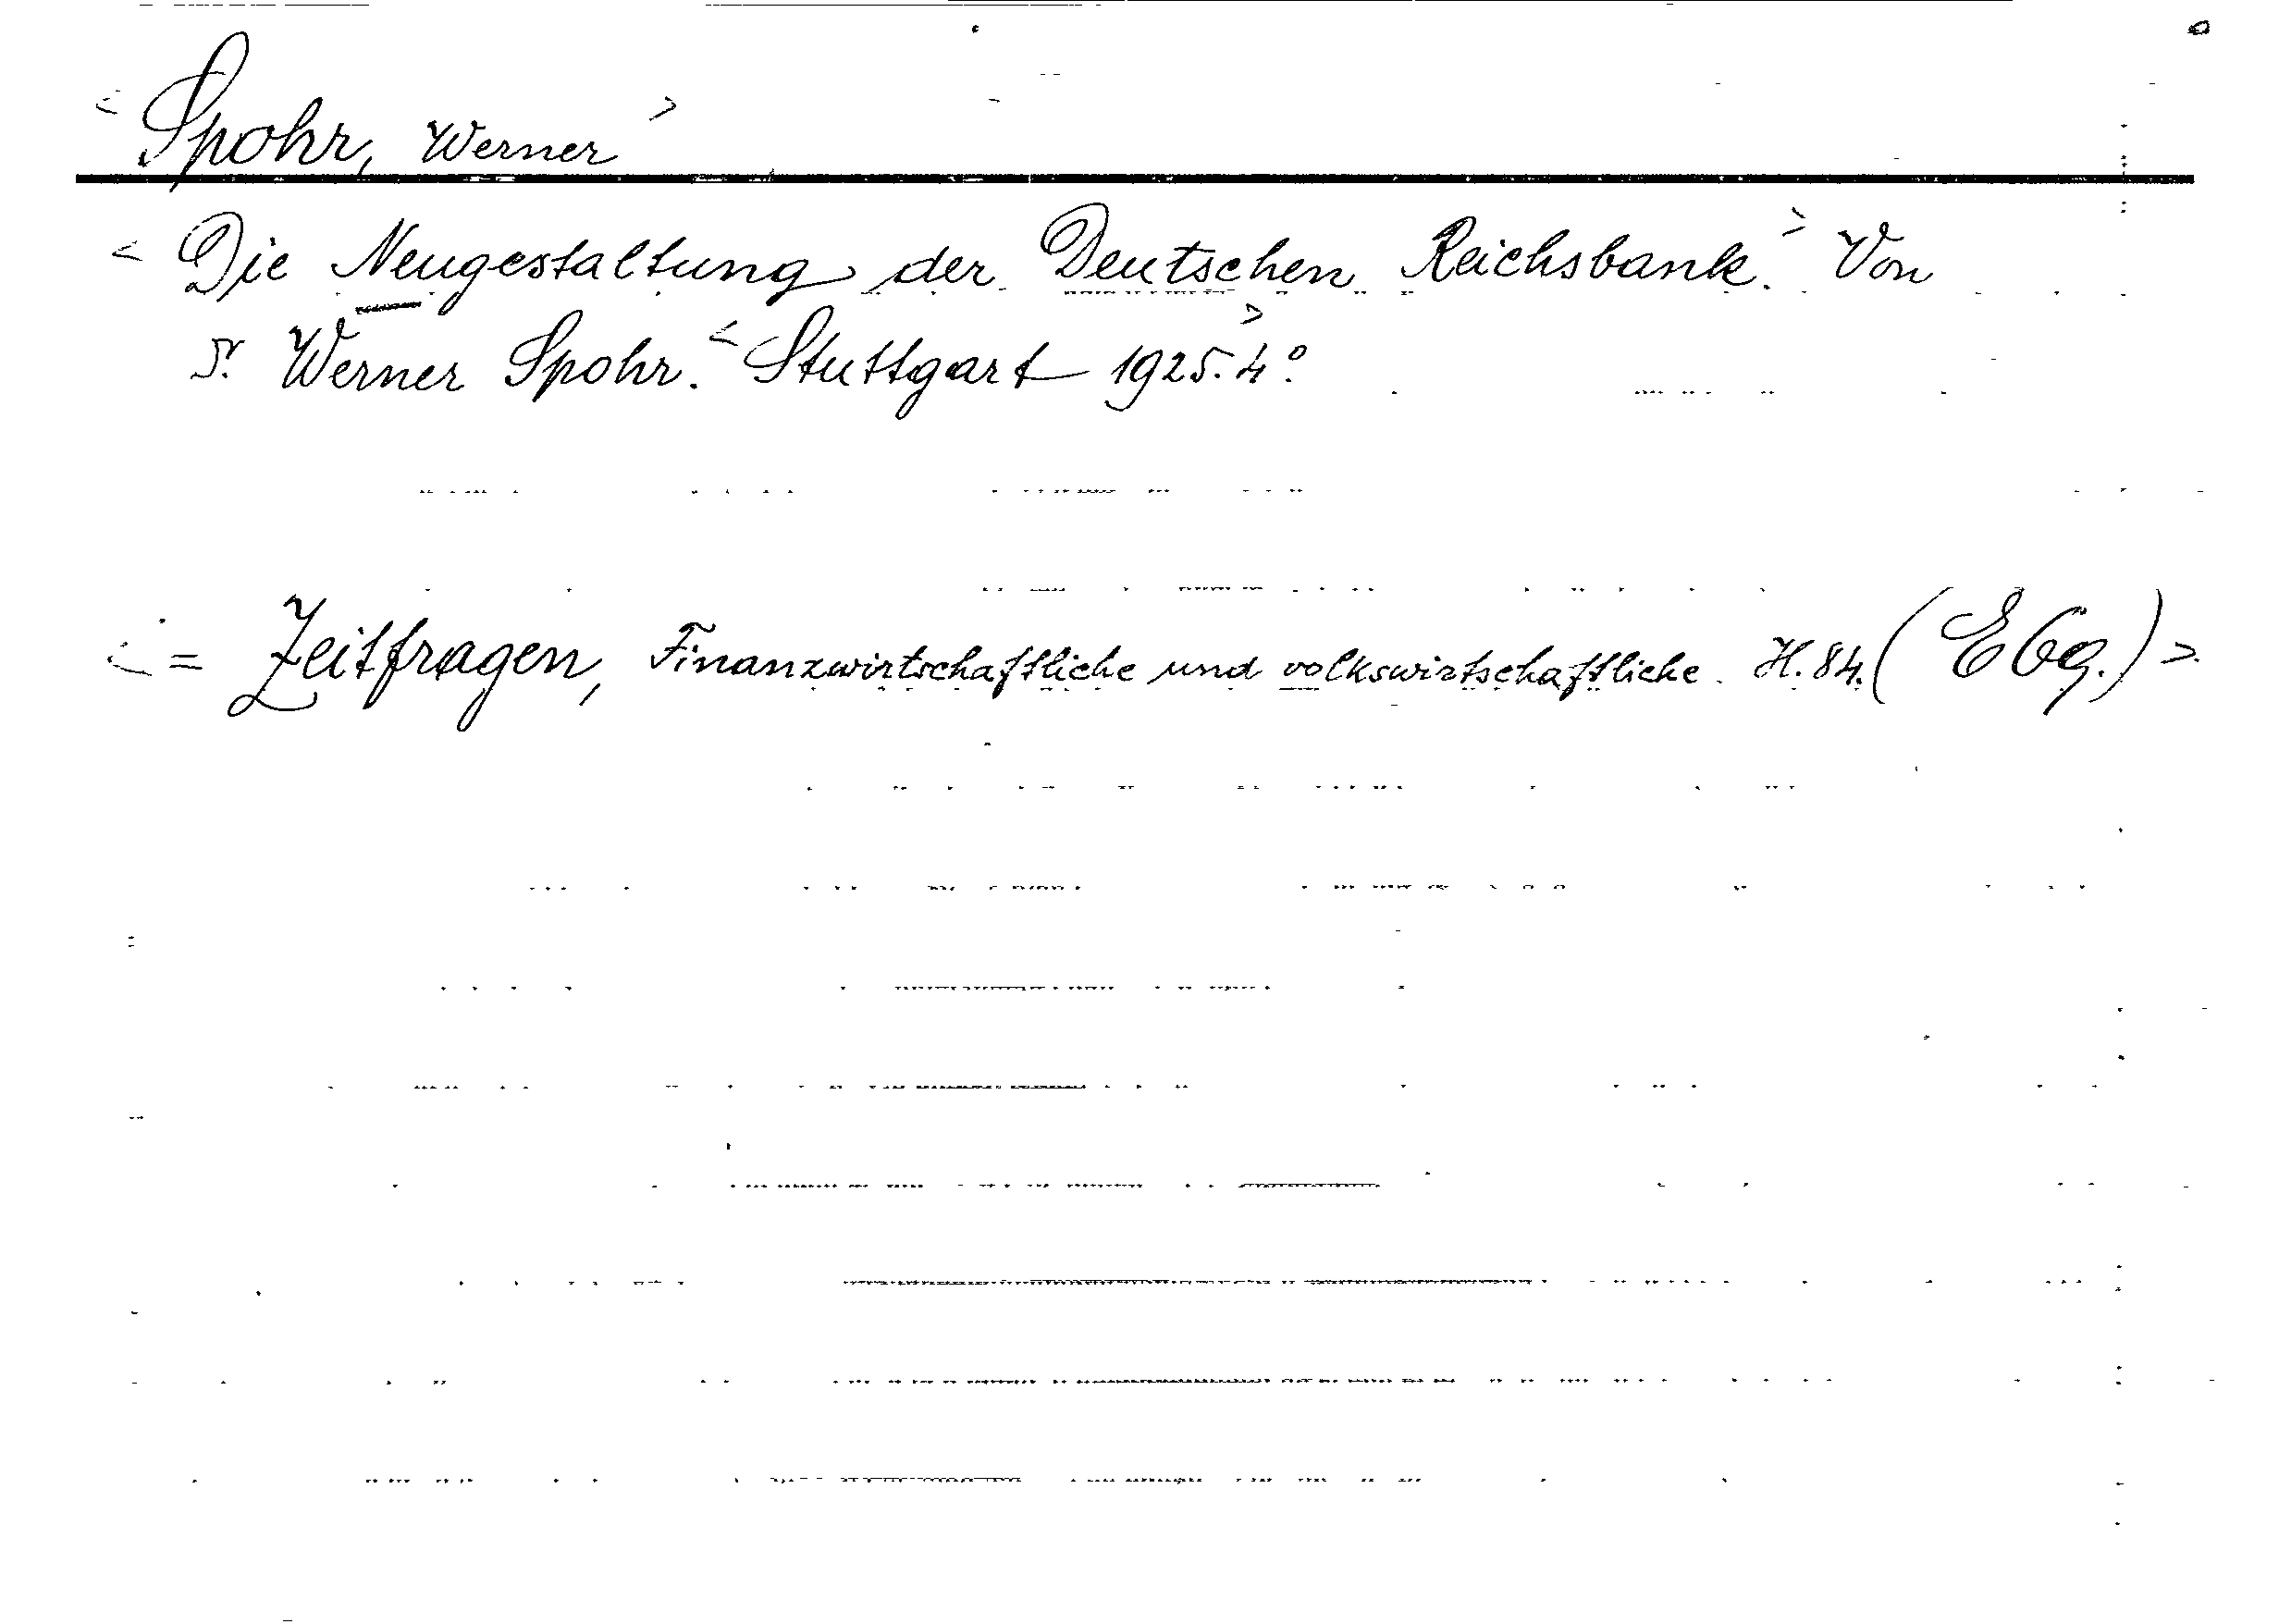 < Spohr, Werner >
< Die Neugestaltung der Deutschen Reichsbank. > Von
Dr. Werner Spohr. < Stuttgart 1925. > 4°.
< = Zeitfragen, Finanzwirtschaftliche und volkswirtschaftliche. H. 84. ( ) >